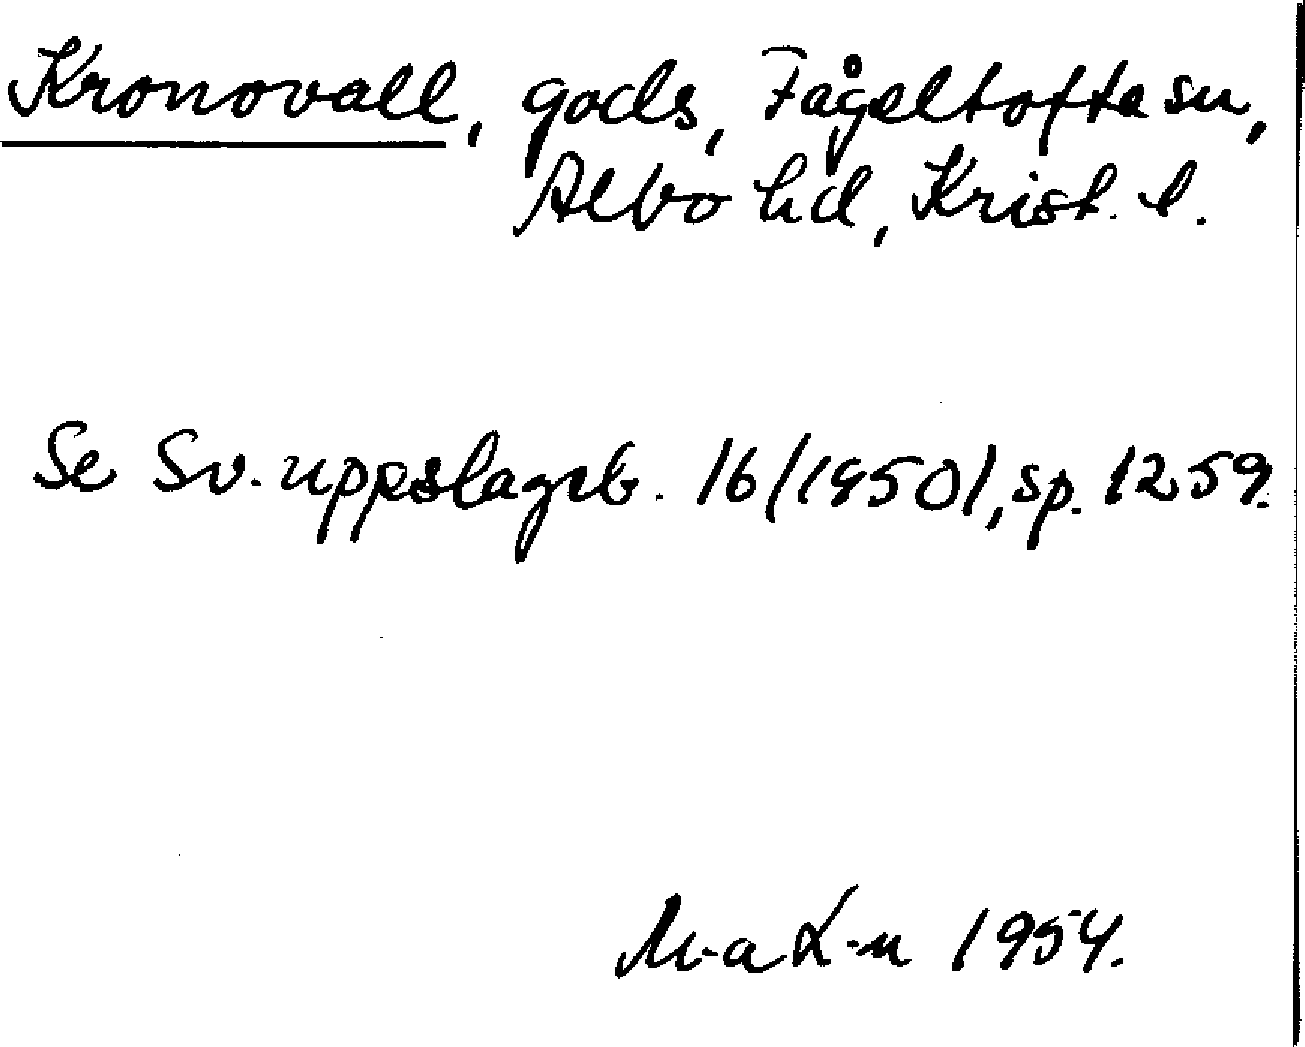 Kronovall, gods, Fågeltofta sn,
Albo hd, Krist. l.
Se Sv. uppslagsb. 16/1950/, sp. 1259.
M-a L-n 1954.